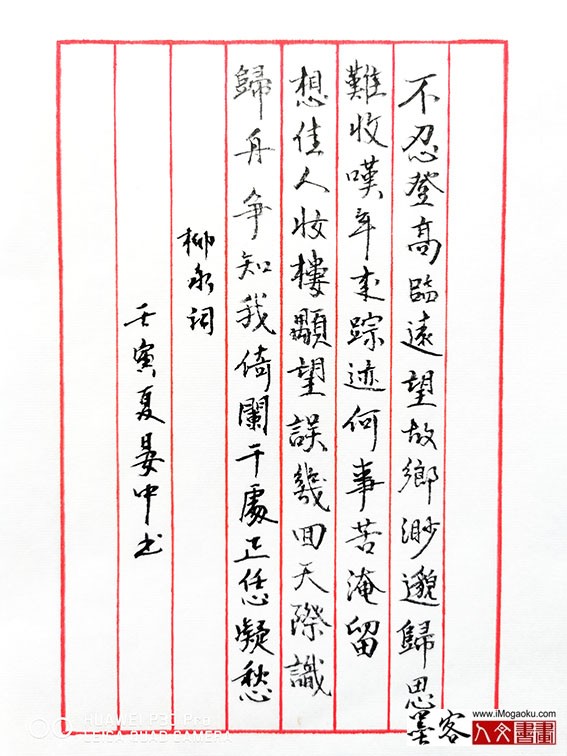 不忍登高臨遠望故鄉渺邈歸思
難收嘆年来踪迹何事苦淹留
想佳人妝樓顒望誤幾回天際識
歸舟爭知我倚闌干處正恁凝愁
柳永詞
壬寅夏晏中书
墨客
www.iMogaoku.com
HUAWEI P30 Pro
LEICA QUAD CAMERA